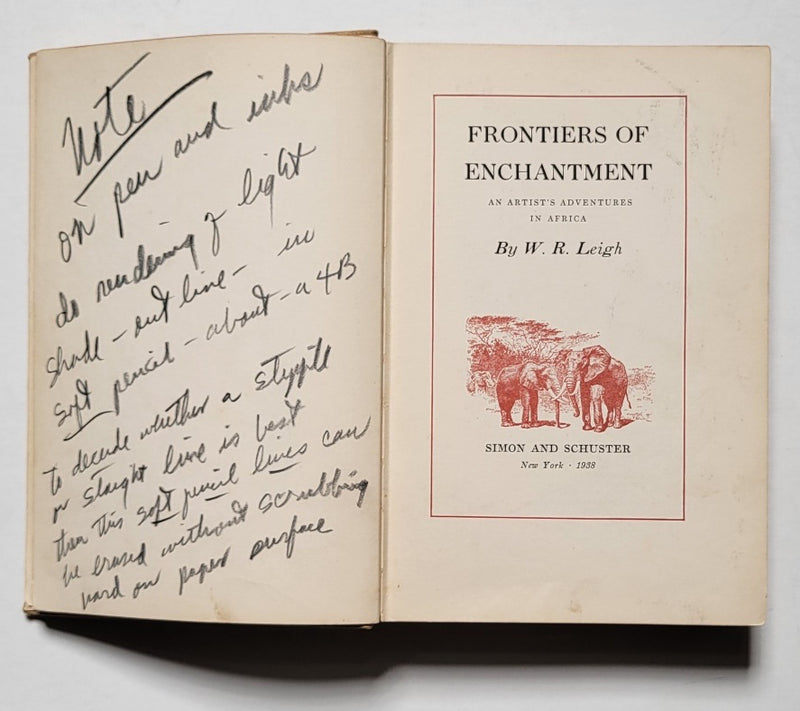 Note
on pen and inks
do rendering of light
shade - out line - in
soft pencil - about - a 4B
to decide whether a stypple
or staight line is best
then this soft pencil lines can
be erased without scrubbing
hard on paper surface
FRONTIERS OF
ENCHANTMENT
AN ARTIST'S ADVENTURES
IN AFRICA
By W. R. Leigh
SIMON AND SCHUSTER
New York · 1938